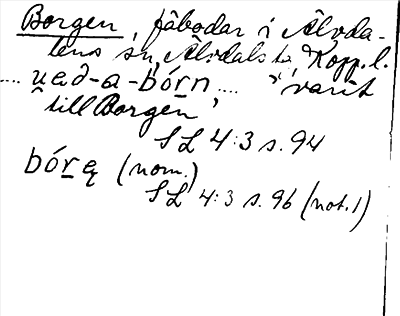 Borgen, fäbodar i Älvda-
lens sn, Älvdals ts, Kopp. l.
.... u̯ad-a-bórn .... "varit
till Borgen"
SL 4:3 s. 94
bórę (nom.)
SL 4:3 s. 96 (not. 1)